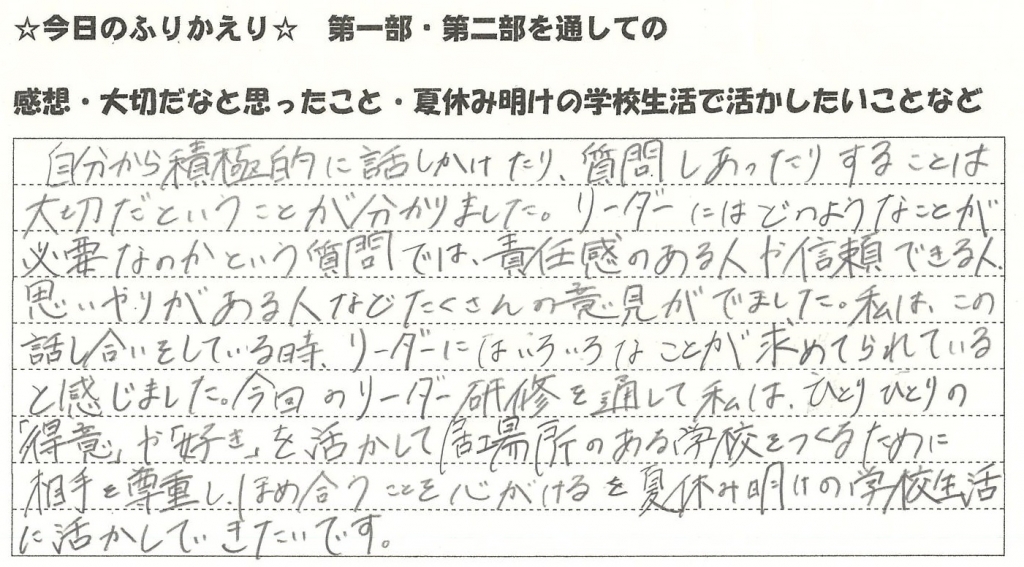 ☆今日のふりかえり☆　第一部・第二部を通しての
感想・大切だなと思ったこと・夏休み明けの学校生活で活かしたいことなど
自分から積極的に話しかけたり、質問しあったりすることは
大切だということが分かりました。リーダーにはどのようなことが
必要なのかという質問では、責任感のある人や信頼できる人、
思いやりがある人などたくさんの意見がでました。私は、この
話し合いをしている時、リーダーにはいろいろなことが求めてられている
と感じました。今回のリーダー研修を通して私は、ひとりひとりの
「得意」や「好き」を活かして居場所のある学校をつくるために
相手を尊重し、ほめ合うことを心がけるを夏休み明けの学校生活
に活かしていきたいです。